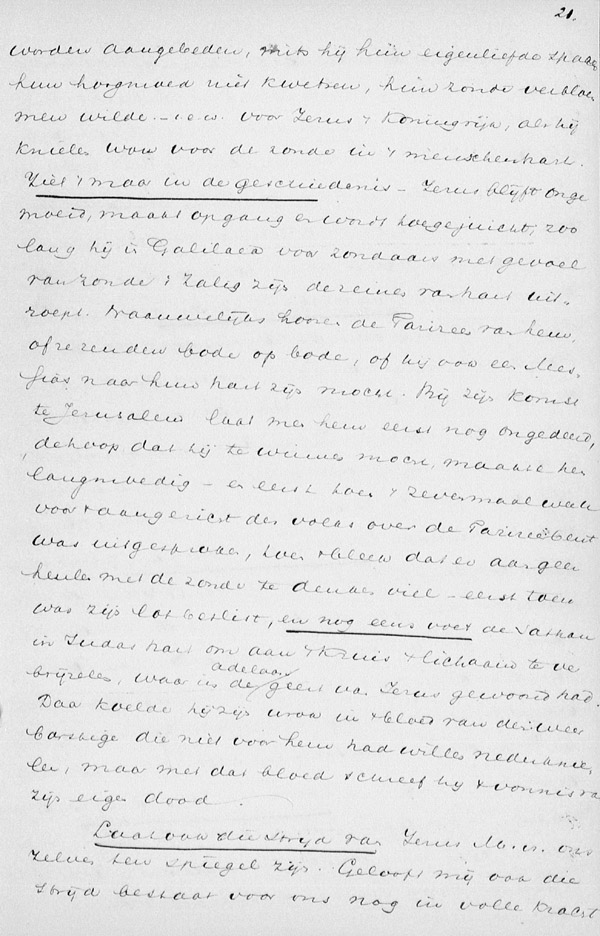 21.
worden aangebeden, mits hij hun eigenliefde sparen
hun hoogmoed niet kwetsen, hun zonde verbloe
men wilde. – i.e.w. voor Jezus 't Koningrijk, als hij
knielen wou voor de zonde in 't menschenhart.
Ziet 't maar in de geschiedenis – Jezus blijft onge
moeid, maakt opgang en wordt toegejuicht, zoo
lang hij in Galilaea voor zondaars met gevoel
van zonde 't zalig zijn de reinen van hart uit-
roept. Naauwelijks hooren de Farizeen van hem,
of ze zenden bode op bode, of hij ook een Mes-
sias naar hun hart zijn mocht. Bij zijn komst
te Jerusalem laat men hem eerst nog ongedeerd,
de hoop dat hij te winnen mocht, maakte hen
langmoedig – en eerst toen 't zevenmaal wee
voor 't aangezicht des volks over de Farizeebent
was uitgesproken, toen 't bleek dat er aan geen
heulen met de zonde te denken viel – eerst toen
was zijn lot beslist, en nog eens voer de Satan
in Judas hart om aan 't kruis 't lichaam te ve
brijzelen, waarin de adelaar geest van Jezus gewoond had.
Daar koelde hij zijn wraak in 't bloed van den weer
barstige die niet voor hem had willen nederknie
len, maar met dat bloed schreef hij 't vonnis va
zijn eigen dood.
Laat ook die strijd van Jezus M. v. ons
zelven ten spiegel zijn. Gelooft mij ook die
strijd bestaat voor ons nog in volle kracht